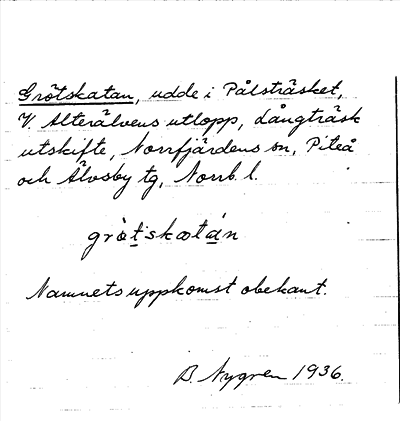 Grötskatan, udde i Pålsträsket,
V. Alterälvens utlopp, Långträsk
utskifte, Norrfjärdens sn, Piteå
och Älvsby tg, Norrb. l.
grö̀tskatán
Namnets uppkomst obekant.
B. Nygren 1936.